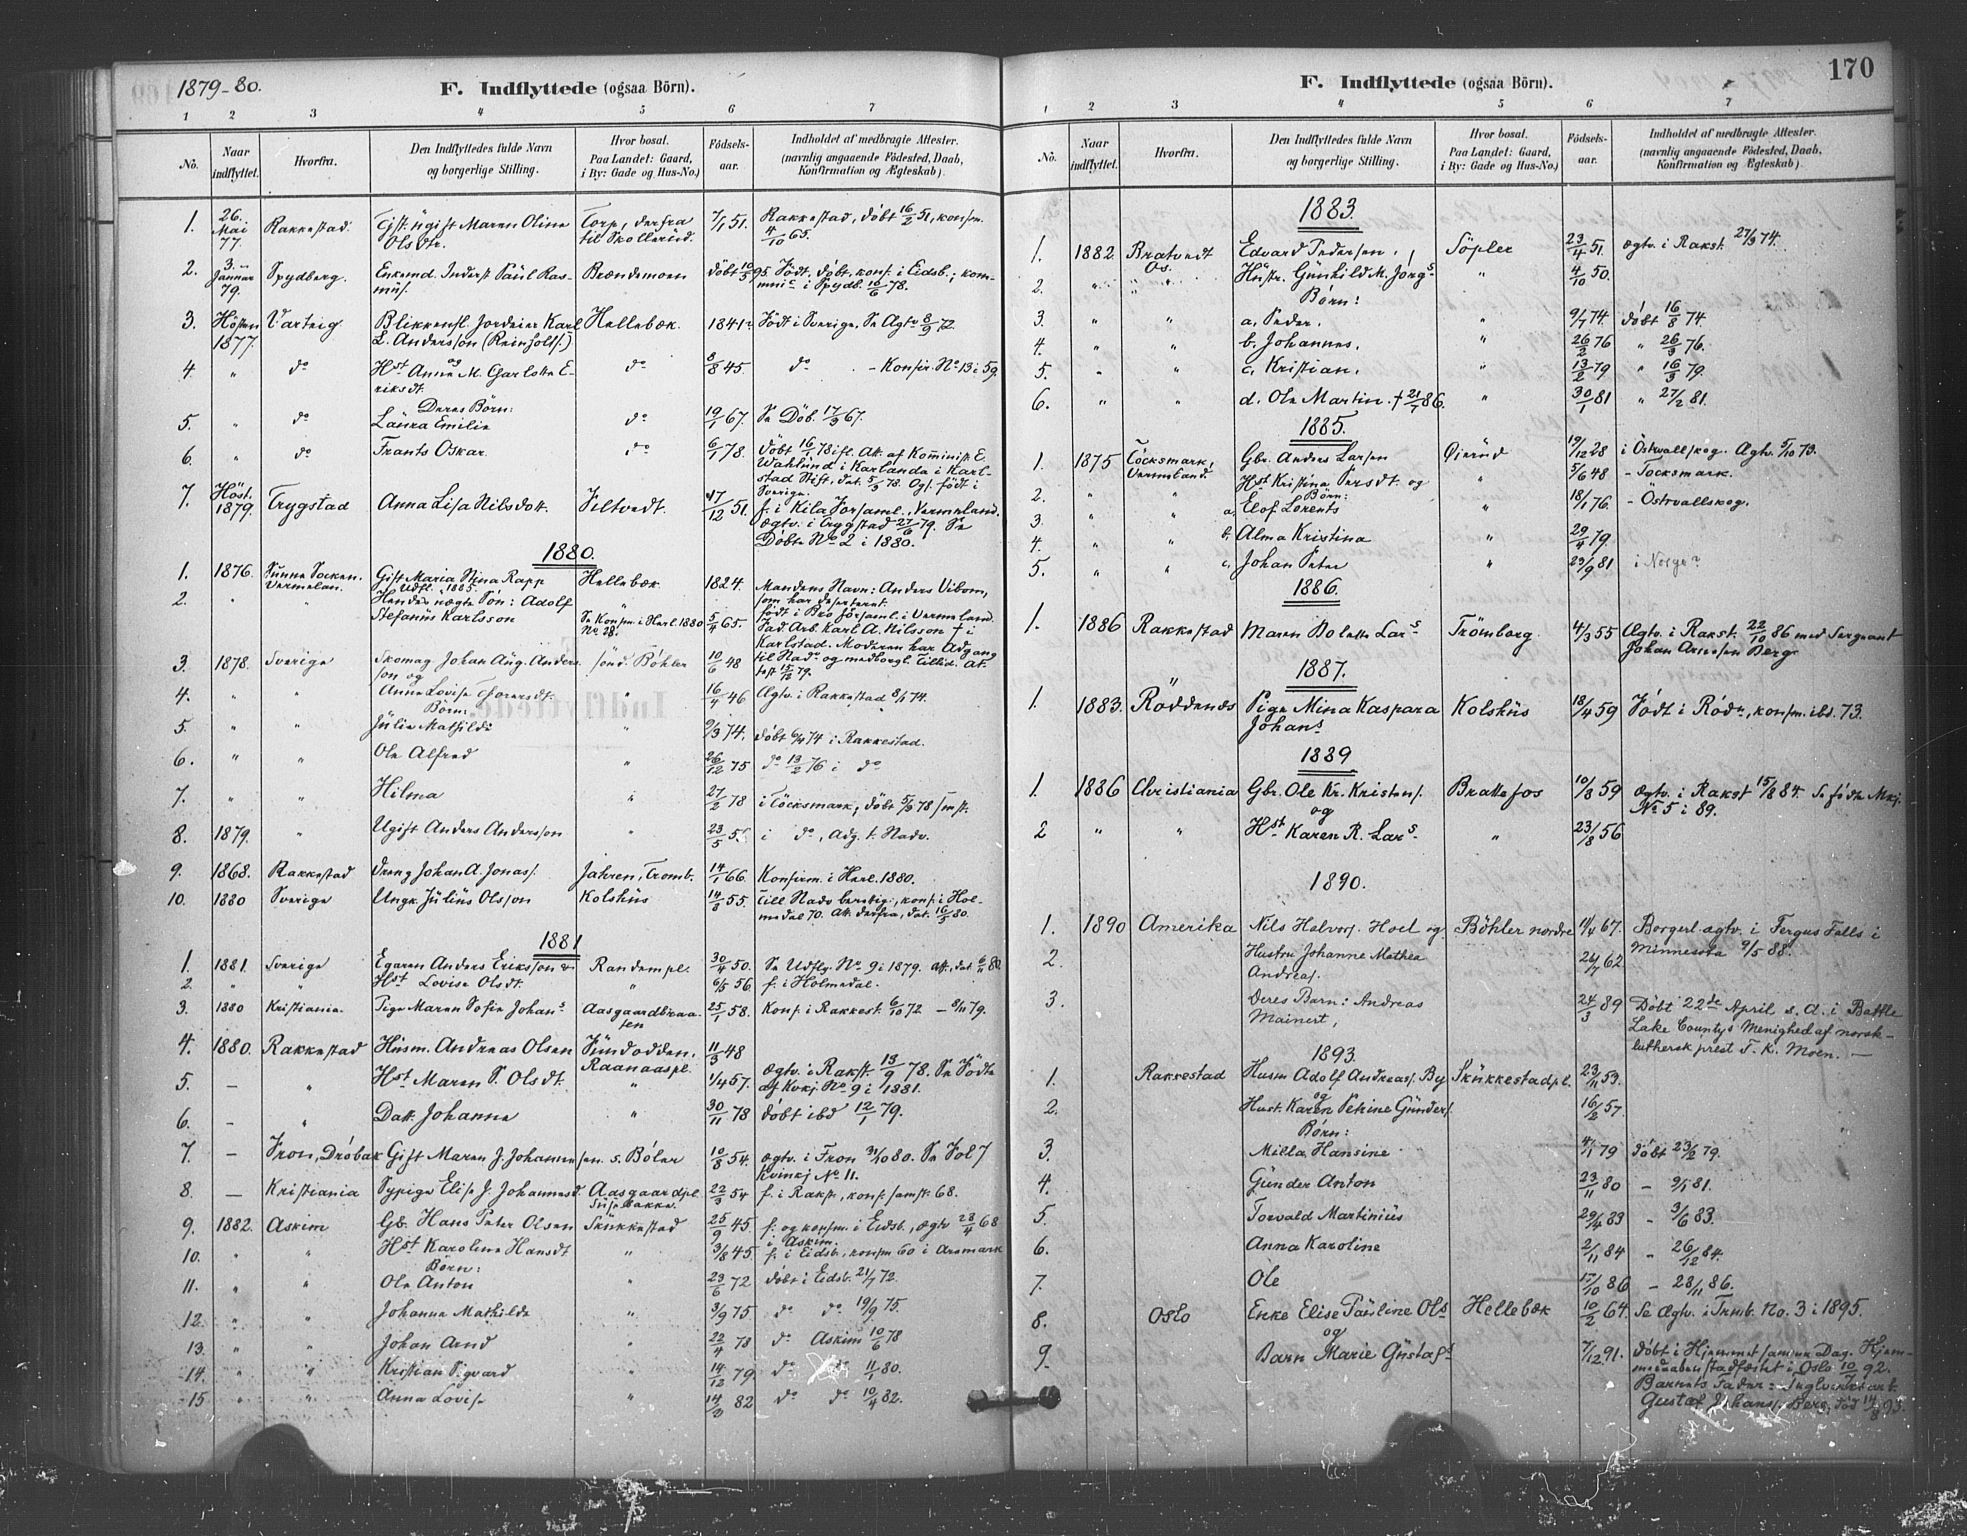 1879-80.
F. Indflyttede (ogsaa Börn).
1 2 3 4 5 6 7
No. Naar indflyttet. Hvorfra. Den Indflyttedes fulde Navn og borgerlige Stilling. Hvor bosat. Paa Landet: Gaard, i By: Gade og Hus-No.) Fødselsaar. Indholdet af medbragte Attester. (navnlig angaaende Fødested, Daab, Konfirmation og Ægteskab)
1. 26. Mai 77. Rakkestad. Maren Olina Olsdtr. Torp, derfra til Skollerud. 7/1 51. Rakkestad, døbt 16/2 51, konfm. 4/10 65.
2. 3. Januar 79. Spydberg. Enkemd. Inderst Paul Rasmus. Brændemoen døbt 10/5 95 Født, døbt, konf. i Eidsb.; kommnic i Spydb. 16/6 78.
3. Høsten 1877. Varteig Blikkensl. Karl L. Andersson (Reinholtz.) Hellebæk. 1841 Født i Sverige, Se Ægtv 8/9 72.
4. " do Hst Anna M. Charlotta Eriksdt. do 8/8 45. do - Konfir. No 13 i 59.
Deres Börn:
5. " do Laura Emilie do 19/1 67. Se Döb. 17/3 67.
6. " do Frants Oskar. do 6/1 78. døbt 16/1 78 ifl. Att. af Kominist. E. Wahlund i Karlanda i Karlstad Stift, dat. 5/3 78. Ogs. født i Sverige.
7. Høst. 1879. Trygstad Anna Lisa Nilsdott. Siltvedt. 17/12 51. f. i Kila Forsaml., Vermeland. ægtv. i Trygstad 27/6 79. Se Døbte No 2 i 1880.
1880.
1. 1876. Sunne Socken. Vermelan. Gift Maria Stina Rapp Udfl. 1885. Hellebæk 1824. Mandens Navn: Anders Vibom, som har deserteret.
2. " " Hendes uægte Søn: Adolf Stefanus Karlsson Se Konfm. i Harl. 1880 No 28. 5/4 65. født i Bro Församl. i Vermeland. Fad. Arb. Karl A. Nilsson † i Karlstad. Moderen har Adgang
3. 1878. Sverige Skomag. Johan Aug. Andersson og sönd. Böhler 10/6 48 til Nadv og medborgl. Tillid. Attest 15/12 79.
4. " " Anna Lovisa Thoresdt. " 16/4 46 Ægtv. i Rakkestad 8/1 74.
Börn:
5. " " Julia Mathilda " 9/3 74. døbt 6/4 74 i Rakkestad.
6. " " Ole Alfred " 26/12 75 do 13/2 76 i do
7. " " Hilma " 27/2 78 i Töcksmark, døbt 5/3 78 smst.
8. 1879. " Ugift Anders Andersson " 23/5 5 i do, Adg. t. Nadv.
9. 1868. Rakkestad Dreng Johan A. Jonas. Jahren, Tromb. 14/1 66 Konfirm. i Harl. 1880.
10. 1880 Sverige Ungk. Julius Olsson Kolshus 14/8 55. Till Nadv berettig., konf. i Holmedal 70. Att. derfra, dat. 16/3 80.
1881
1. 1881. Sverige Egaren Anders Eriksson & Randempl. 30/4 50. Se Udflg. No 9 i 1879. Att. dat. 6/11 80.
2. " " Hst Lovisa Olsdt. " 6/5 56 f. i Holmedal.
3. 1880 Kristiania. Pige Maren Sofie Johans Aasgaardbraasen 25/1 58. Konf. i Rakkest. 6/10 72 - 8/11 79.
4. 1880. Rakkestad Husm. Andreas Olsen Sundodden. Raanaaspl. 11/3 48
5. - " Hst Maren P. Olsdt. " 1/4 57. ægtv. i Rakst. 13/9 78. Se Födte af Kvkj No 9 i 1881.
6. - " Datt. Johanna " 30/11 78 døbt ibd 12/1 79.
7. - Fron, Dröbak Gift Maren J. Johannesen. s. Böler 10/8 54. ægtv. i Fron 31/10 80. Se Fol 7 Kvinkj No 11.
8. - Kristiania Sypige Elise J. Johannesd. Aasgaardpl. 22/3 54 f. i Rakst., konf. samst. 68.
9. 1882. Askim Gb. Hans Peter Olsen Skukkestad 25/9 45 f. og konfm. i Eidsb., ægtv 28/4 68 i Askim.
10. " " Hst Karoline Hansdt " 3/8 45 f. i Eidsb., konfm 60 i Aremark
Börn:
11. " " Ole Anton " 23/6 72 døbt i Eidsb. 21/7 72.
12. " " Johanna Mathilde " 3/9 75 do do 19/9 75.
13. " " Johan Arnd " 22/4 78 do Askim 10/6 78
14. " " Kristian Sigvard 14/12 79 do do 11/1 80.
15 " " Anna Lovise " 14/3 82 do do 10/4 82.
170
F. Indflyttede (ogsaa Börn).
1 2 3 4 5 6 7
No. Naar indflyttet. Hvorfra. Den Indflyttedes fulde Navn og borgerlige Stilling. Hvor bosat. Paa Landet: Gaard, i By: Gade og Hus-No.) Fødselsaar. Indholdet af medbragte Attester. (navnlig angaaende Fødested, Daab, Konfirmation og Ægteskab)
1883.
1. 1882. Bratvedt Os. Edvard Pedersen, Söpler 23/4 51. ægtv. i Rakst. 27/3 74.
2. " " Hustr. Gunhild M. Jörgs " 4/10 50.
Børn:
3. " " a. Peder. " 9/7 74. døbt 16/8 74.
4. " " b. Johannes. " 26/2 76 " 26/3 76.
5. " " c. Kristian. 13/2 79 " 16/3 79.
6. " " d. Ole Martin. † 21/7 86. " 30/1 81 " 27/2 81.
1885.
1. 1875 Töcksmark, Vermeland. Gbr. Anders Larsen Øierud 19/12 28 i Östvallskog. Ægtv. 5/10 73.
2. " " Hst Kristina Persdt. og " 5/6 48 - Tocksmark.
Börn:
3. " " a, Elof Lorents " 18/1 76. - Östrvallskog.
4. " " b. Alma Kristina " 29/4 79
5. " " c, Johan Peter " 23/9 81 i Norge?
1886.
1. 1886 Rakkestad Maren Bolette Lars Trömborg. 4/3 55 Ægtv. i Rakst. 22/10 86 med Sergeant Johan Arnesen Berg.
1887.
1. 1883. Röddenæs Pige Mina Kaspara Johans Kolshus 18/4 59 Födt i Röd., konfm. ibd. 73.
1889
1. 1886 Christiania Gbr. Ole Kr. Kristens. og Brattefos 10/8 59 ægtv. i Rakst 15/8 84. Se födte Mkj. No 5 i 89.
2 " " Hst Karen R. Lars. " 23/8 56
1890.
1. 1890 Amerika Nils Halvors. Hoel og Böhler nordre 11/4 67. Borgerl. ægtv. i Fergus Falls i Minnesota 9/5 88.
2. Hustru Johanne Mathea Andreas. 26/7 62
3. Deres Barn: Andreas Mainert, 24/3 89 Døbt 22de April s. A. i Battle Lake Countys Menighed af norsk-luthersk prest T. K. Moen. -
1893.
1. Rakkestad Husm Adolf Andreas. By Skukkestadpl. 23/11 53.
og
2. Hust. Karen Petrine Gunders. 16/2 57.
Børn:
3. Milla Hansine 4/1 79 døbt 23/2 79.
4. Gunder Anton 23/11 80 - 9/1 81.
5. Torvald Martinius 29/4 83 - 3/6 83.
6. Anna Karoline 2/11 84 - 26/12 84.
7. Ole 17/10 86 - 28/11 86.
8. Oslo Enke Elise Pauline Ols Hellebæk 10/2 64. Se Ægtv. i Trmb. No. 3 i 1895.
og
9. Barn Marie Gustafs 7/12 91. døbt i Hjemmet samme Dag. Hjemmedaaben stadfæstet i Oslo 10/7 92. Barnets Fader: Gustaf Johans. Berg, død 14/8 93.